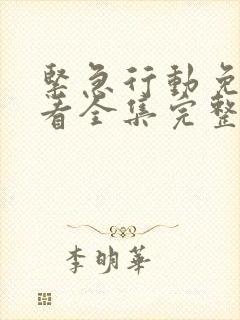 緊急行動免
看全集完整
李明華